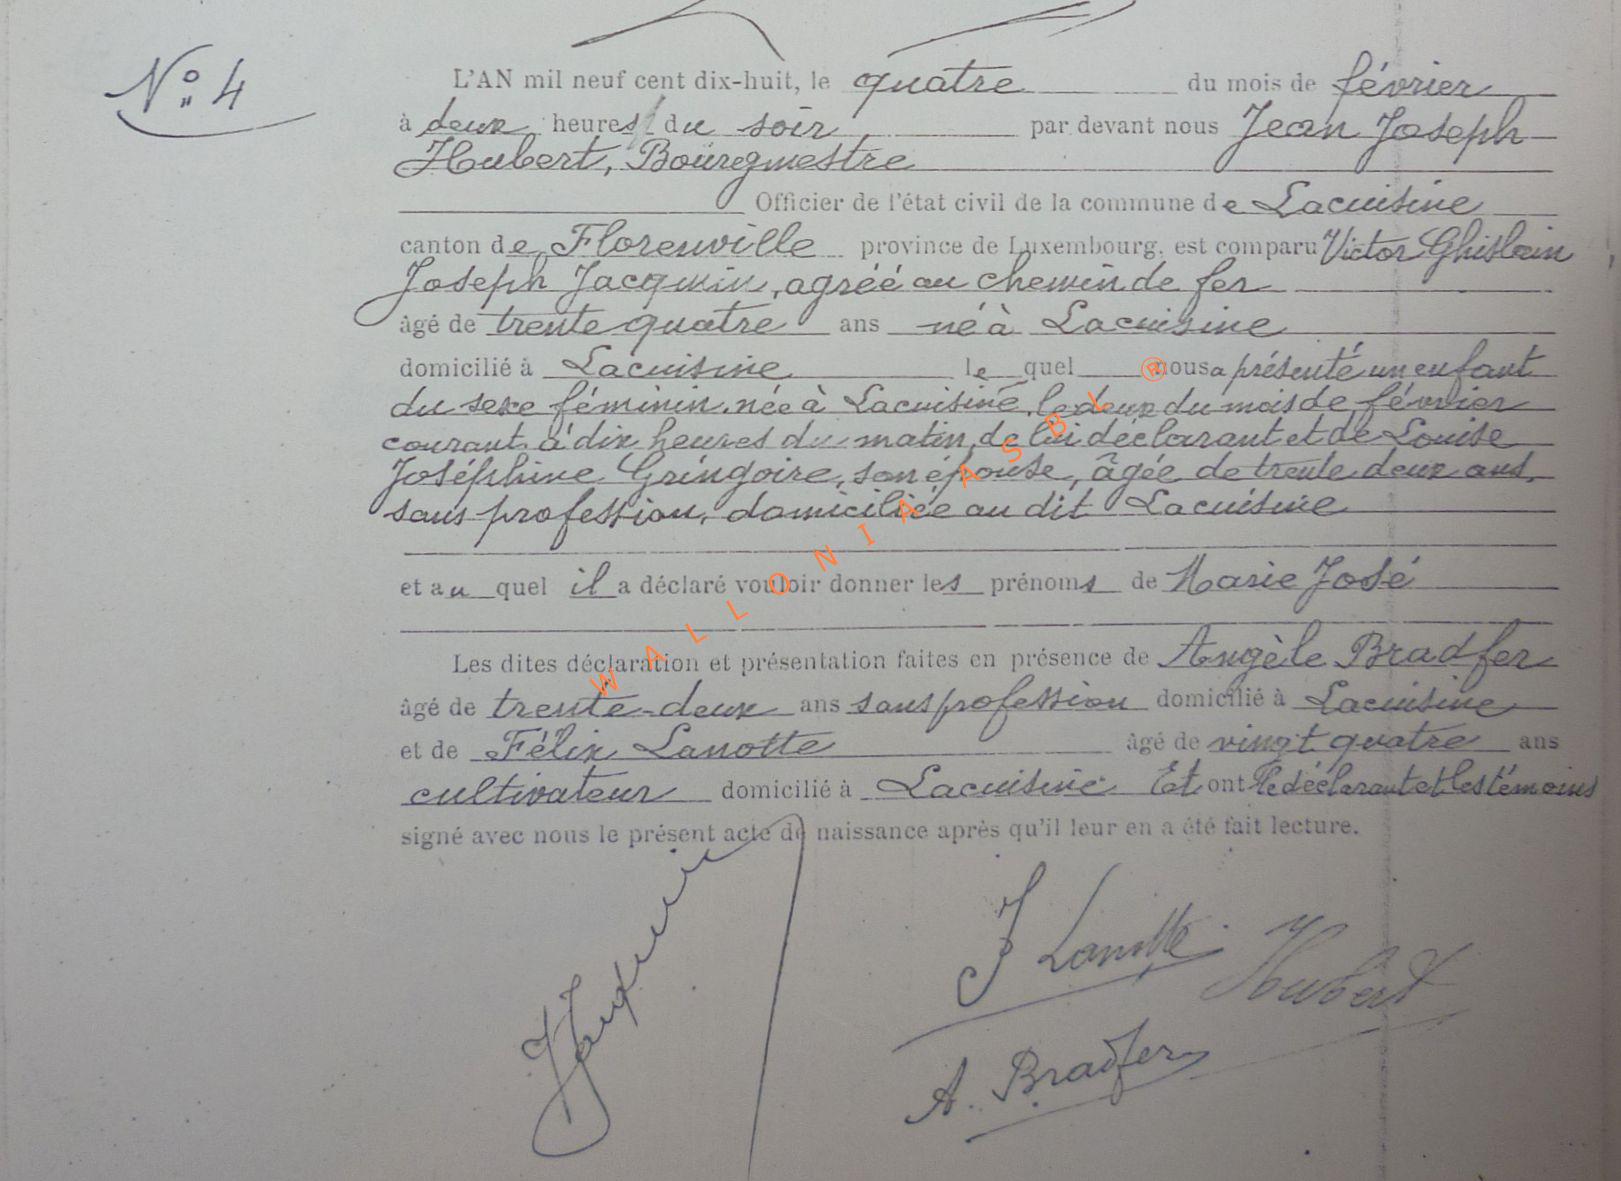 N° 4
L'AN mil neuf cent dix-huit, le quatre du mois de février
à deux heures du soir par devant nous Jean Joseph
Hubert, Bourgmestre
Officier de l'état civil de la commune de Lacuisine
canton de Florenville province de Luxembourg, est comparu Victor Ghislain
Joseph Jacquin, agréé au chemin de fer
âgé de trente quatre ans né à Lacuisine
domicilié à Lacuisine le quel nous a présenté un enfant
du sexe féminin, née à Lacuisine, le deux du mois de février
courant à dix heures du matin, de lui déclarant et de Louise
Joséphine Gringoire, son épouse, âgée de trente deux ans,
sans profession, domiciliée au dit Lacuisine
et au quel il a déclaré vouloir donner les prénoms de Marie José
Les dites déclaration et présentation faites en présence de Angèle Bradfer
âgé de trente-deux ans sans profession domicilié à Lacuisine
et de Félix Lanotte âgé de vingt quatre ans
cultivateur domicilié à Lacuisine Et ont le déclarant et les témoins
signé avec nous le présent acte de naissance après qu'il leur en a été fait lecture.
Jacquin
F Lanotte
Hubert
A. Bradfer
WALLONIA ASBL ®